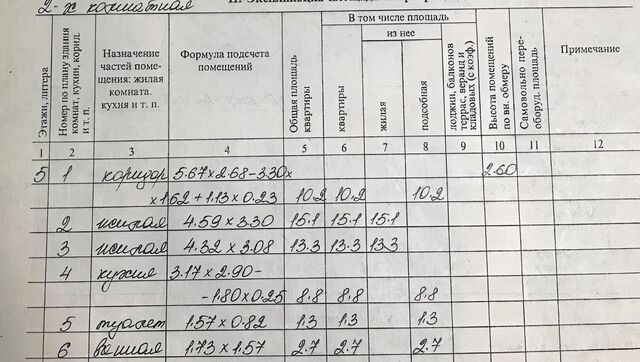 2-х комнатная
В том числе площадь
из нее
Этажи, литера
Номер по плану здания комнат, кухни, корид. и т. п.
Назначение частей помещения: жилая комната. кухня и т. п.
Формула подсчета помещений
Общая площадь квартиры
квартиры
жилая
подсобная
лоджии, балконов террас, веранд и кладовых (с коэф.)
Высота помещений по вн. обмеру
Самовольно переоборуд. площадь
Примечание
1 2 3 4 5 6 7 8 9 10 11 12
5 1 коридор 5.67×2.68-3.30× 2.60
×1.62+1.13×0.23 10.2 10.2 10.2
2 жилая 4.59×3.30 15.1 15.1 15.1
3 жилая 4.32×3.08 13.3 13.3 13.3
4 кухня 3.17×2.90-
-1.80×0.25 8.8 8.8 8.8
5 туалет 1.57×0.82 1.3 1.3 1.3
6 ванная 1.73×1.57 2.7 2.7 2.7